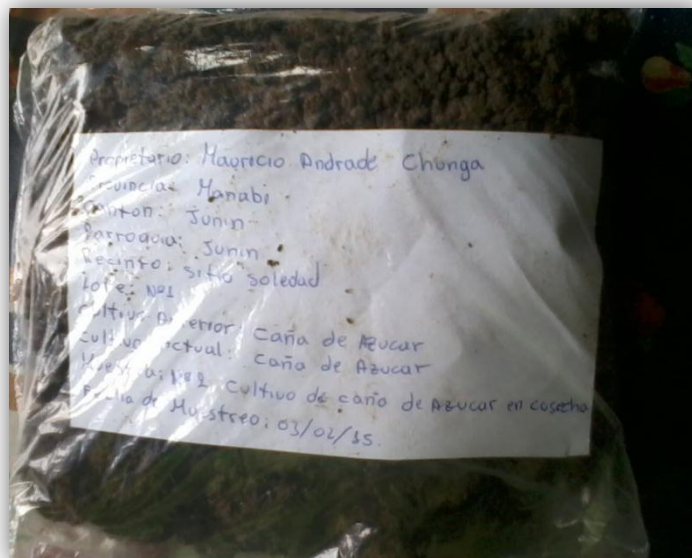 Propietario: Mauricio Andrade Chonga
Provincia: Manabi
Canton: Junin
Parroquia: Junin
Recinto: sitio Soledad
Lote: Nº1
Cultivo Anterior: Caña de Azucar
Cultivo Actual: Caña de Azucar
Muestra: Nº2 Cultivo de caña de Azucar en cosecha
Fecha de Muestreo: 03/02/15.